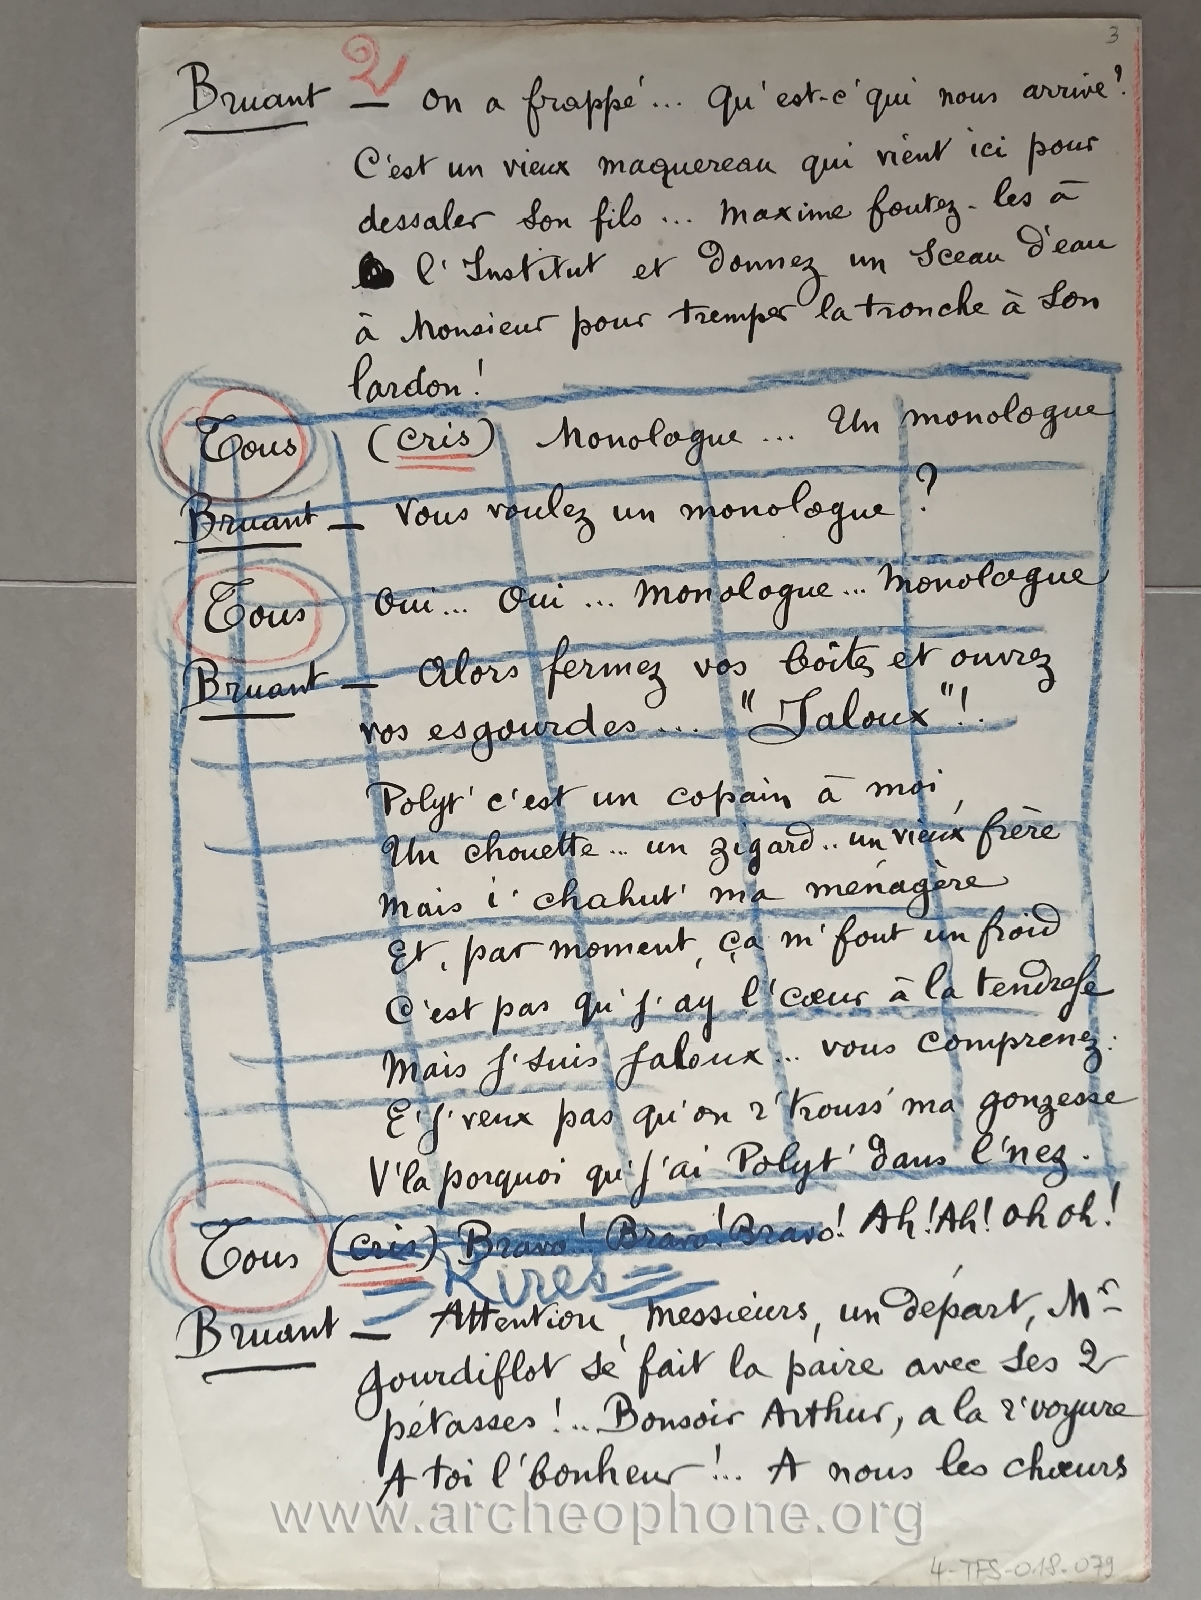 3
2
Bruant — On a frappé... Qu'est-c'qui nous arrive?
C'est un vieux maquereau qui vient ici pour
dessaler son fils... Maxime foutez-les à
l'Institut et donnez un sceau d'eau
à Monsieur pour tremper la tronche à son
lardon!
Tous (cris) Monologue... Un monologue
Bruant — Vous voulez un monologue?
Tous Oui... Oui... Monologue... Monologue
Bruant — Alors fermez vos boîtes et ouvrez
vos esgourdes... "Jaloux"!.
Polyt' c'est un copain à moi,
Un chouette... un zigard.. un vieux frère
Mais i' chahut' ma ménagère
Et, par moment, ça m'fout un froid
C'est pas qu'j'ay l'cœur à la tendresse
Mais j'suis jaloux... vous comprenez:
E'j'veux pas qu'on r'trouss' ma gonzesse
V'la porquoi qu'j'ai Polyt' dans l'nez.
Tous (cris) Bravo! Bravo! Bravo! Ah! Ah! oh oh!
Rires
Bruant — Attention, Messieurs, un départ, Mr
Jourdiflot se fait la paire avec ses 2
pétasses!.. Bonsoir Arthur, a la r'voyure
A toi l'bonheur!.. A nous les chœurs
www.archeophone.org
4-TFS-018-079